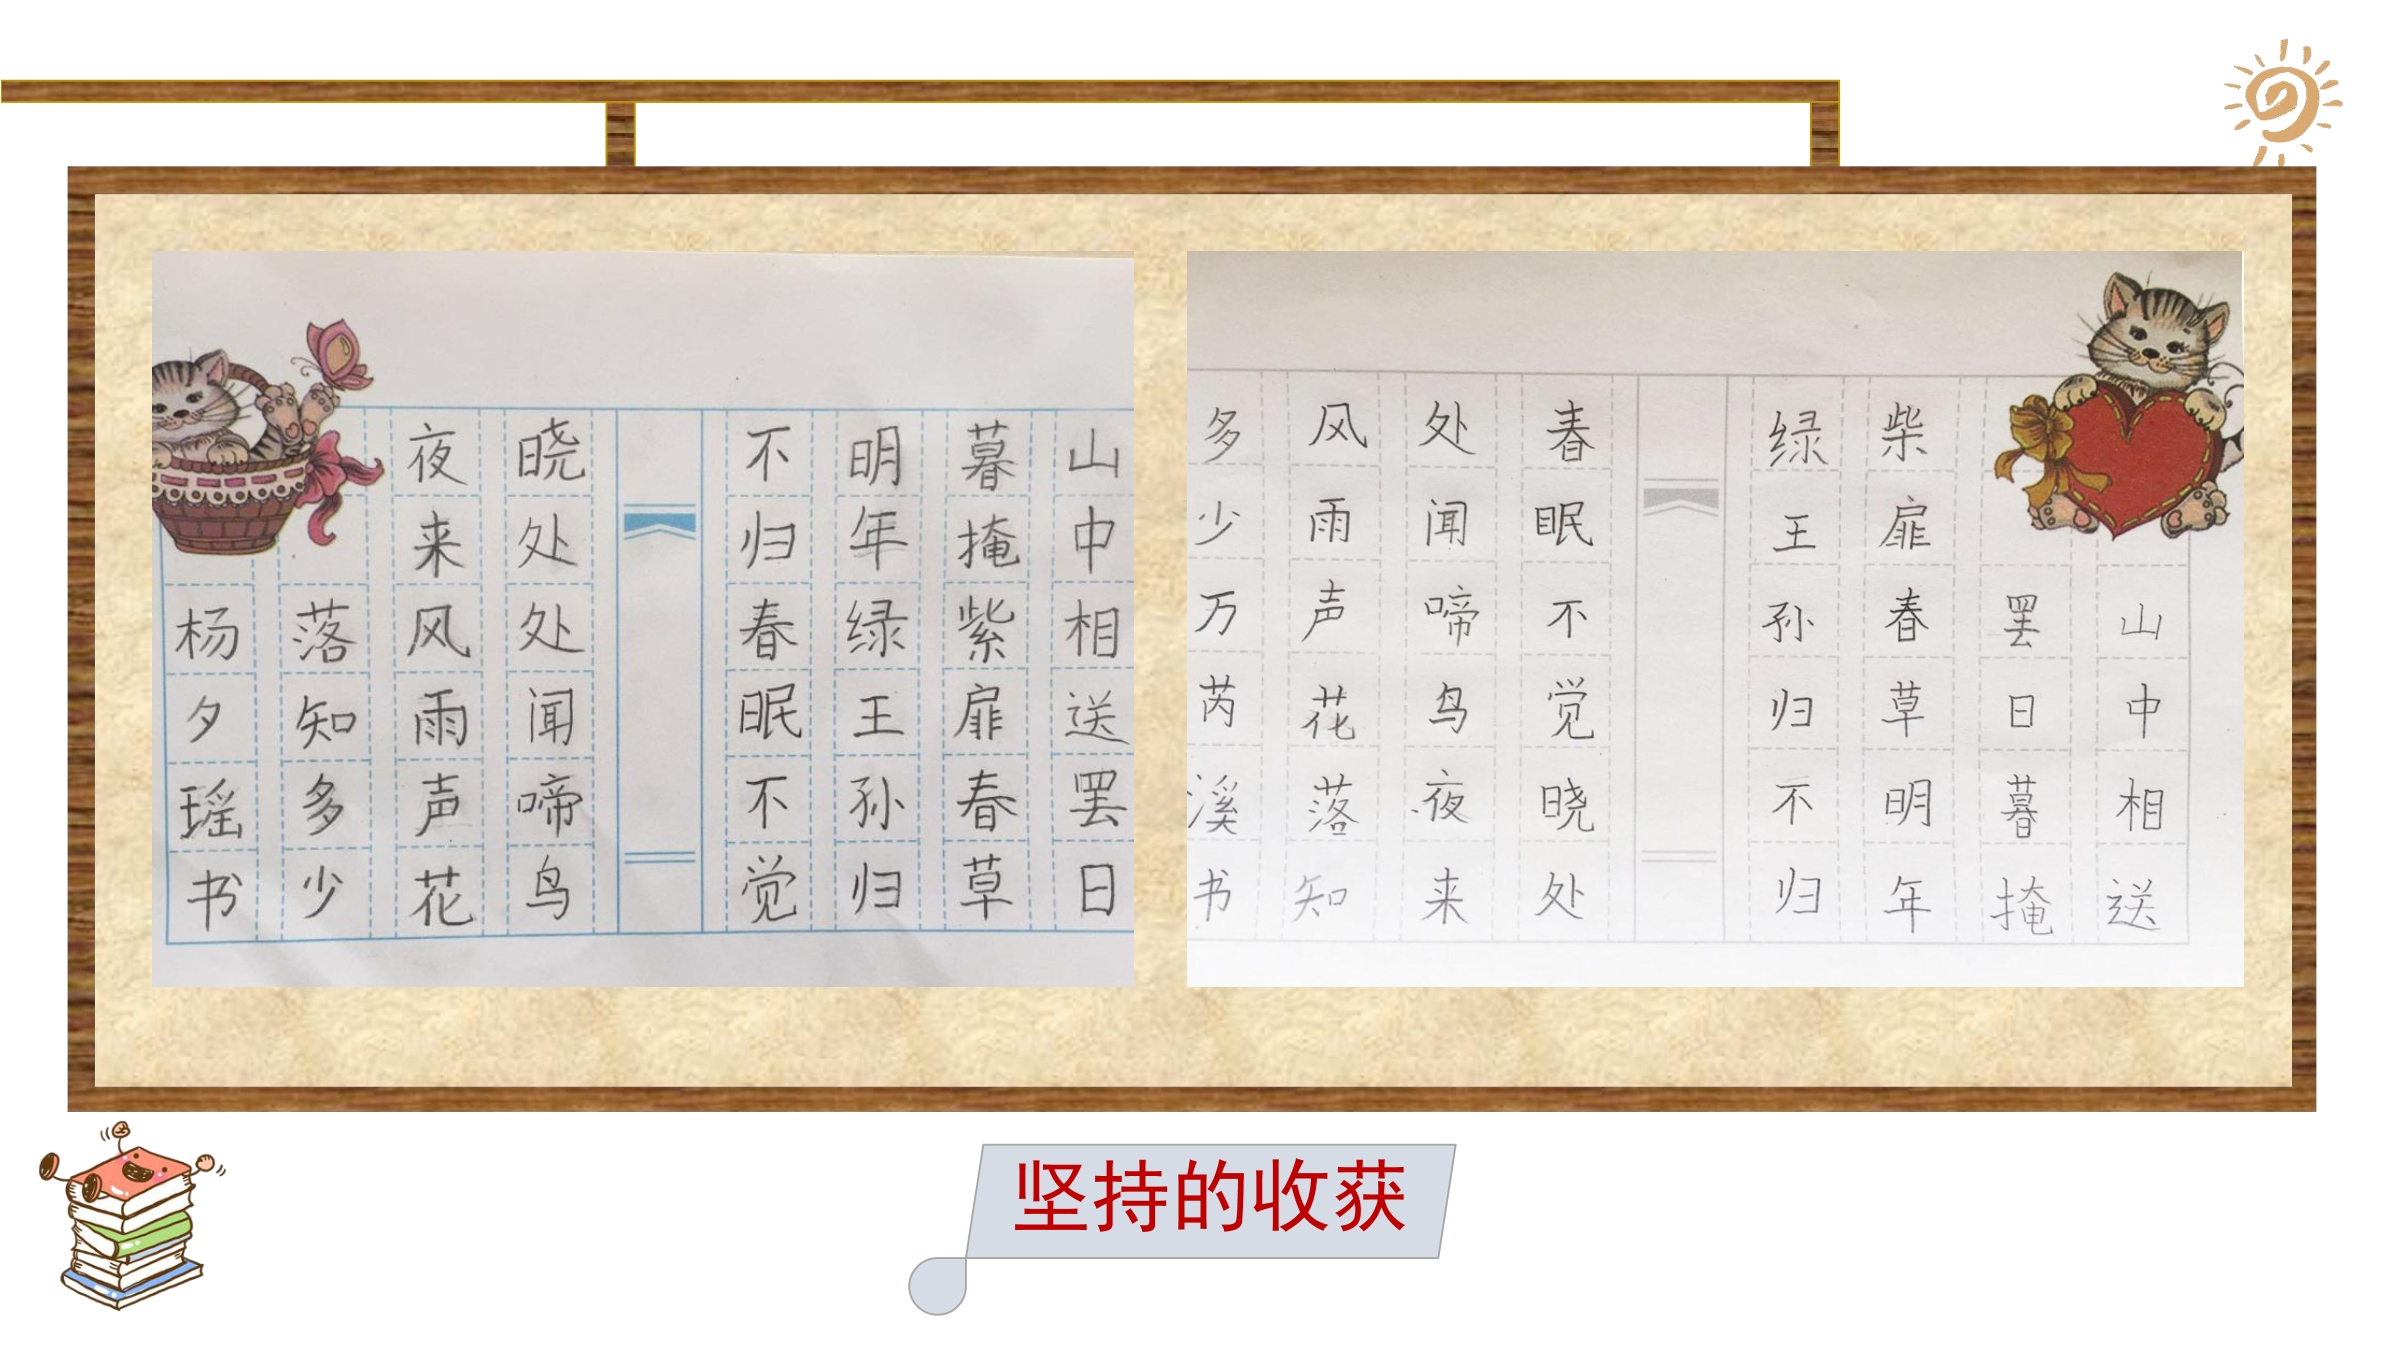 山中相送罢日
暮掩紫扉春草
明年绿王孙归
不归春眠不觉
晓处处闻啼鸟
夜来风雨声花
落知多少
杨夕瑶书
山中相送
罢日暮掩
柴扉春草明年
绿王孙归不归
春眠不觉晓处
处闻啼鸟夜来
风雨声花落知
多少万芮溪书
坚持的收获